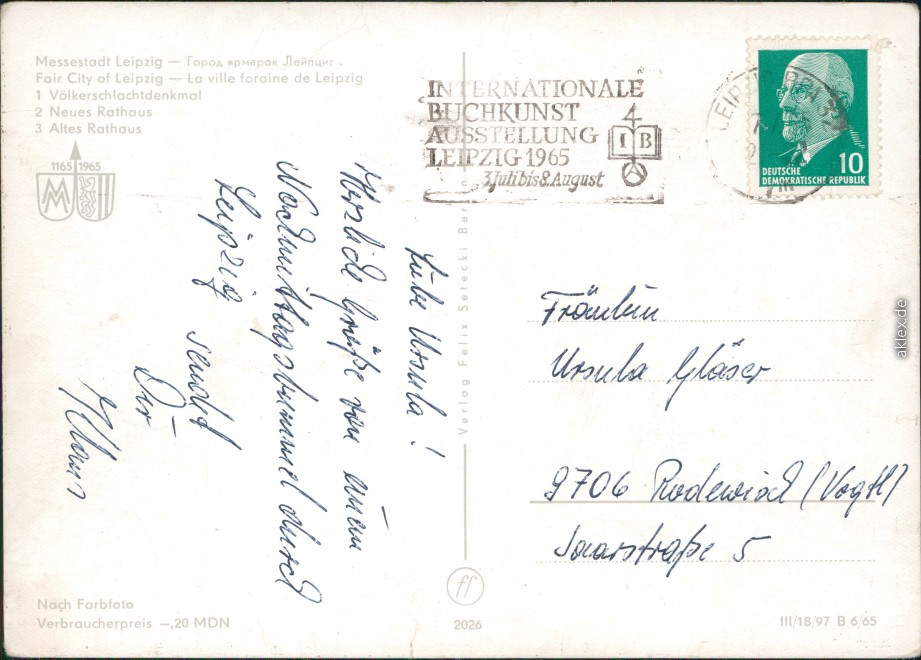 Messestadt Leipzig — Город ярмарок Лейпциг
Fair City of Leipzig — La ville foraine de Leipzig
1 Völkerschlachtdenkmal
2 Neues Rathaus
3 Altes Rathaus
1165 1965
INTERNATIONALE
BUCHKUNST
AUSSTELLUNG
LEIPZIG 1965
3. Juli bis 8. August
I B
LEIPZIG
10
DEUTSCHE
DEMOKRATISCHE REPUBLIK
Liebe Ursula!
Herzliche Grüße von einem
Nachmittagsbummel durch
Leipzig sendet
Dir
Klaus
Verlag Felix Setecki Ber
Fräulein
Ursula Gläser
9706 Rodewisch (Vogtl)
Saarstraße 5
Nach Farbfoto
Verbraucherpreis —,20 MDN
ff
2026
III/18/97 B 6/65
aklex.de